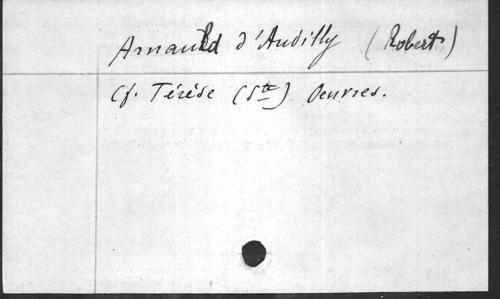 Arnauld d'Andilly (Robert)
Cf. Térèse (Ste) Oeuvres.